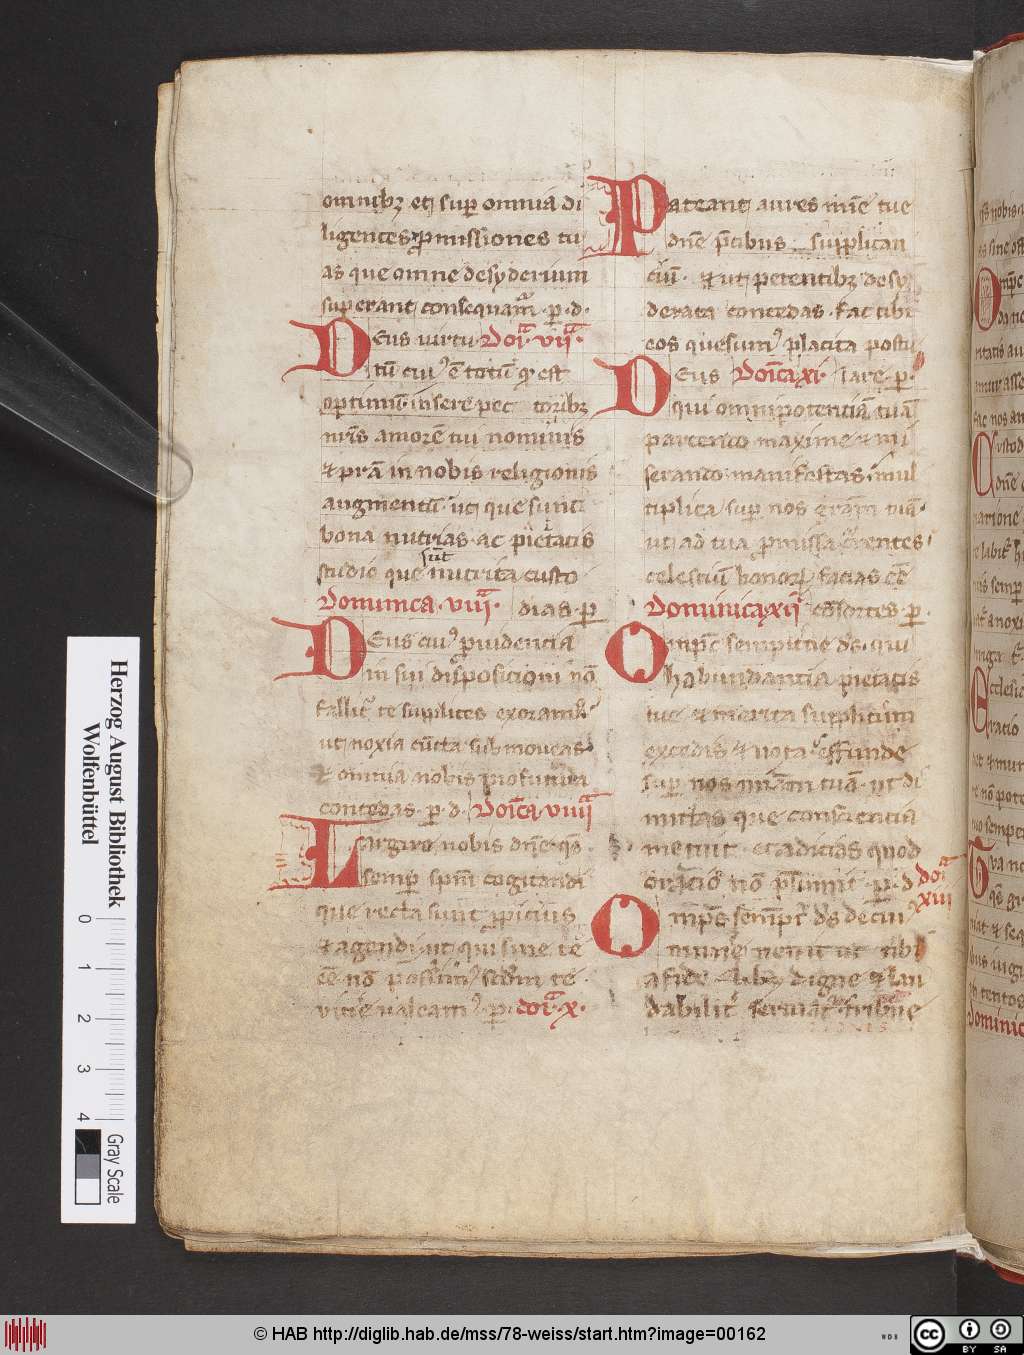 omnibꝫ et sup omnia di
ligentes ꝓmissiones tu
as que omne desyderium
superant consequamᷣ · ꝑ · d ·
Deus uirtu Doī · vii ·
tū cuiꝰ ē totū qͥ est
optimū · insere pec toribꝫ
nr̄is amorē tui nominis
⁊ prā in nobis religionis
augmentū · ut que sunt
bona nutrias · ac pietatis
sūt
studio que nutrita custo
Dominica · viii · dias · ꝑ
Deus cuiꝰ ꝓuidencia
in sui disposicioni nō
fallit᷑ te suplices exoramꝰ
ut noxia cūcta submoueas
⁊ omnia nobis profutura
concedas · ꝑ · d · Doīca · viiii
Largire nobis dn̄e · qs̄
semꝑ spm̄ cogitandi
que recta sunt ꝓpicius
⁊ agendi · ut qui sine te
eē nō possumꝰ scdm te
viue᷑ ualeamꝰ · ꝑ · doī · x ·
Pateant aures mīe tue
dn̄e p̄cibus supplican
ciū · ⁊ ut petentibꝫ desy
derata concedas · fac tibi
eos quesumꝰ placita postu
Deus Doīca xi · lare · ꝑ ·
qui omnipotenciā tuā
parcendo maxime ⁊ mi
serando manifestas · mul
tiplica sup nos grām tuā ·
ut ad tua ꝓmissa currentes
celestiū bonoꝝ facias eē
Dominica xii cōsortes · ꝑ ·
Omp̄c sempit̄ne ds̄ · qui
habundantia pietatis
tue ⁊ merita supplicum
excedis ⁊ uota · effunde
sup nos mīam tuā · ut di
mittas que consciencia
metuit · et adicias quod
orācio nō p̄sumit · ꝑ · d doī
xiii
Omps̄ sempit̄ ds̄ de cuiꝰ
mune᷑ uenit ut tibi
a fidelibꝫ digne ⁊ lau
dabilit᷑ seruiat᷑ tribue
Herzog August Bibliothek
Wolfenbüttel
0 1 2 3 4
Gray Scale
© HAB http://diglib.hab.de/mss/78-weiss/start.htm?image=00162
WDB
cc BY SA